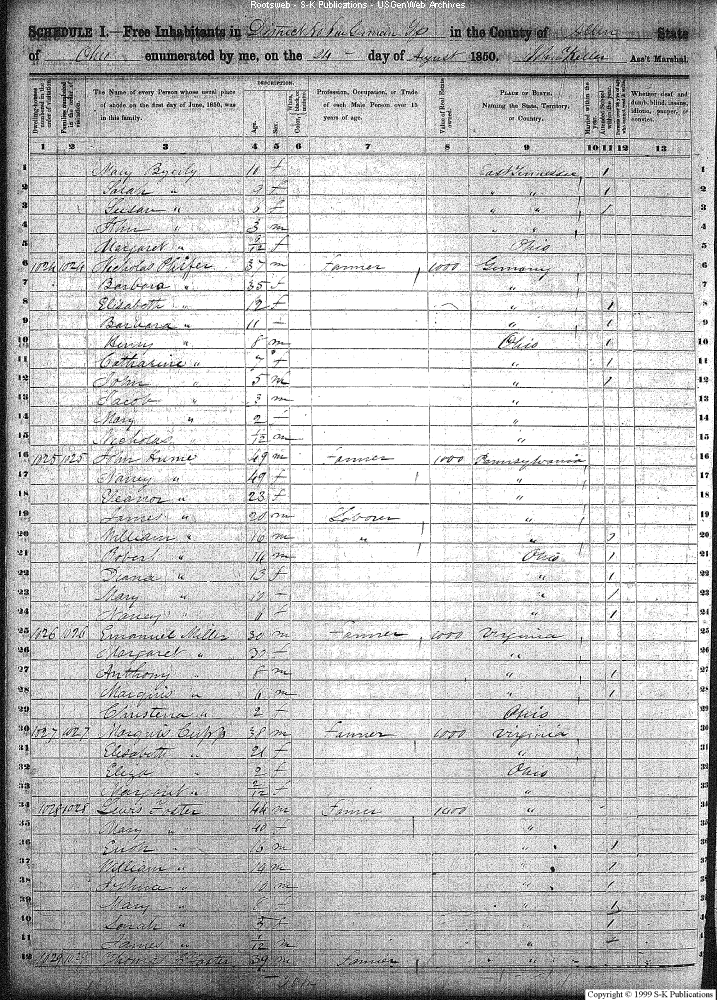 Rootsweb - S-K Publications - USGenWeb Archives
SCHEDULE I.—Free Inhabitants in District in the County of Allen State
of Ohio enumerated by me, on the 24 day of August 1850. Ass't Marshal.
DESCRIPTION.
Dwelling-houses numbered in the order of visitation.
Families numbered in the order of visitation.
The Name of every Person whose usual place of abode on the first day of June, 1850, was in this family.
Age.
Sex.
Color, White, black, or mulatto.
Profession, Occupation, or Trade of each Male Person over 15 years of age.
Value of Real Estate owned.
PLACE OF BIRTH. Naming the State, Territory, or Country.
Married within the year.
Attended School within the year.
Whether deaf and dumb, blind, insane, idiotic, pauper, or convict.
1 2 3 4 5 6 7 8 9 10 11 12 13
1 Mary Byerly 11 f East Tennessee 1 1
2 Sarah " f " " 1 2
3 Susan " f " " 1 3
4 John " 3 m " " 4
5 Margaret " /12 f Ohio 5
6 1024 1024 Nicholas Phifer 37 m Farmer 1000 Germany 6
7 Barbara " 35 f " 7
8 Elisabeth " 12 f " 1 8
9 Barbara " 11 f " 1 9
10 Henry " 8 m Ohio 1 10
11 Catharine " 7 f " 1 11
12 John " 5 m " 1 12
13 Jacob " 3 m " 13
14 Mary " 2 f " 14
15 Nicholas " /12 m " 15
16 1025 1025 John Hume 49 m Farmer 1000 Pennsylvania 16
17 Nancy " 49 f " 17
18 Eleanor " 23 f " 18
19 James " 20 m Laborer " 19
20 William " 16 m " " 1 20
21 Robert " 14 m Ohio 1 21
22 Diana " 13 f " 1 22
23 Mary " f " 1 23
24 Nancy " f " 1 24
25 1026 1026 Emanuel Miller 30 m Farmer 1000 Virginia 25
26 Margaret " f " 26
27 Anthony " 8 m " 1 27
28 Marquis " 6 m " 1 28
29 Christena " 2 f Ohio 29
30 1027 1027 Marquis Cupp 38 m Farmer 1000 Virginia 30
31 Elisabeth " 21 f " 31
32 Eliza " 2 f Ohio 32
33 Margaret " /12 f " 33
34 1028 1028 Lewis Foster 44 m Farmer 1400 " 34
35 Mary " 40 f " 35
36 16 m " 1 36
37 William " 14 m " 1 37
38 Joshua " 10 m " 1 38
39 Mary " 8 f " 1 39
40 Sarah " 5 f " 1 40
41 James " /12 m " 41
42 1029 1029 Thomas Foster 39 m Farmer 42
Copyright © 1999 S-K Publications